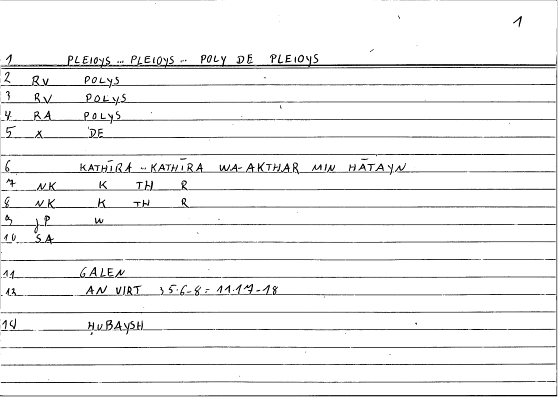 1
1 PLEIOYS … PLEIOYS .. POLY DE PLEIOYS
2 RV POLYS
3 RV POLYS
4 RA POLYS
5 X DE
6 KATHĪRA .. KATHĪRA WA-AKTHAR MIN HĀTAYN
7 NK K TH R
8 NK K TH R
9 JP W
10 SA
11 GALEN
AN VIRT 35.6-8 = 11.17-18
14 ḤUBAYSH